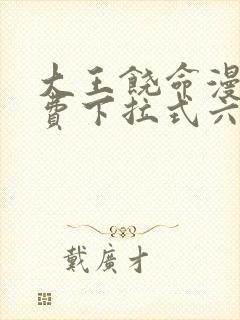 大王饶命漫
费下拉式六
戴廣才